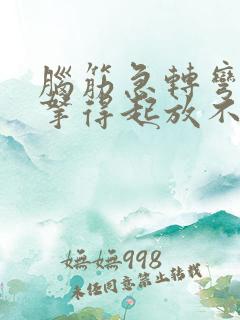 腦筋急轉彎
拏得起放不
嫵嫵998
未任同意禁止轉載